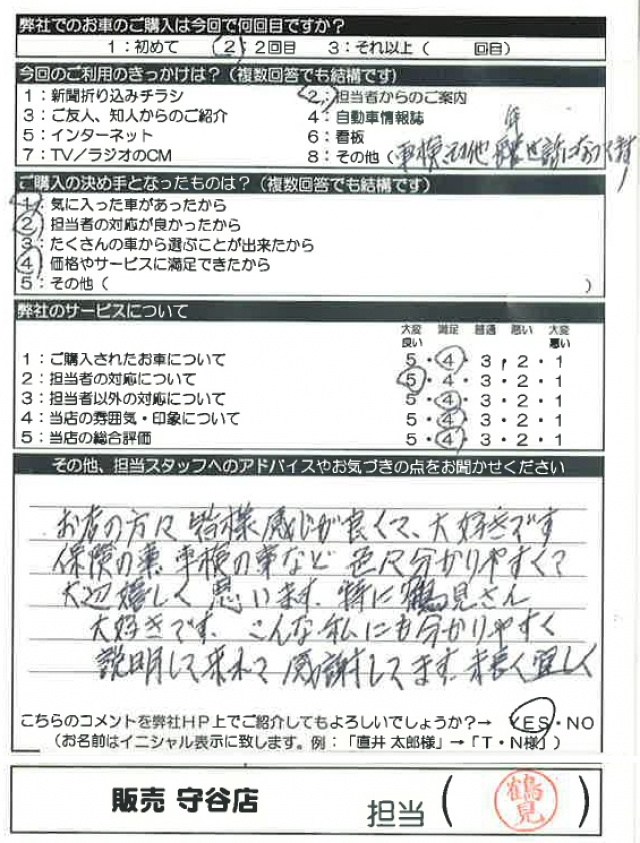 弊社でのお車のご購入は今回で何回目ですか？
1：初めて　2：2回目　3：それ以上（　　回目）
今回のご利用のきっかけは？（複数回答でも結構です）
1：新聞折り込みチラシ　2：担当者からのご案内
3：ご友人、知人からのご紹介　4：自動車情報誌
5：インターネット　6：看板
年
7：TV／ラジオのCM　8：その他（車検その他 世話になってます
ご購入の決め手となったものは？（複数回答でも結構です）
1：気に入った車があったから
2：担当者の対応が良かったから
3：たくさんの車から選ぶことが出来たから
4：価格やサービスに満足できたから
5：その他（　　）
弊社のサービスについて
大変良い　満足　普通　悪い　大変悪い
1：ご購入されたお車について　5・4・3・2・1
2：担当者の対応について　5・4・3・2・1
3：担当者以外の対応について　5・4・3・2・1
4：当店の雰囲気・印象について　5・4・3・2・1
5：当店の総合評価　5・4・3・2・1
その他、担当スタッフへのアドバイスやお気づきの点をお聞かせください
お店の方々 皆様感じが良くて、大好きです
保険の事、車検の事など 色々分かりやすくて
大辺嬉しく思います。特に鶴見さん
大好きです。こんな私にも分かりやすく
説明して来れて 感謝してます。末長く宜しく
こちらのコメントを弊社HP上でご紹介してもよろしいでしょうか？→ YES・NO
（お名前はイニシャル表示に致します。例：「直井 太郎様」→「T・N様」）
販売 守谷店　担当（鶴見）